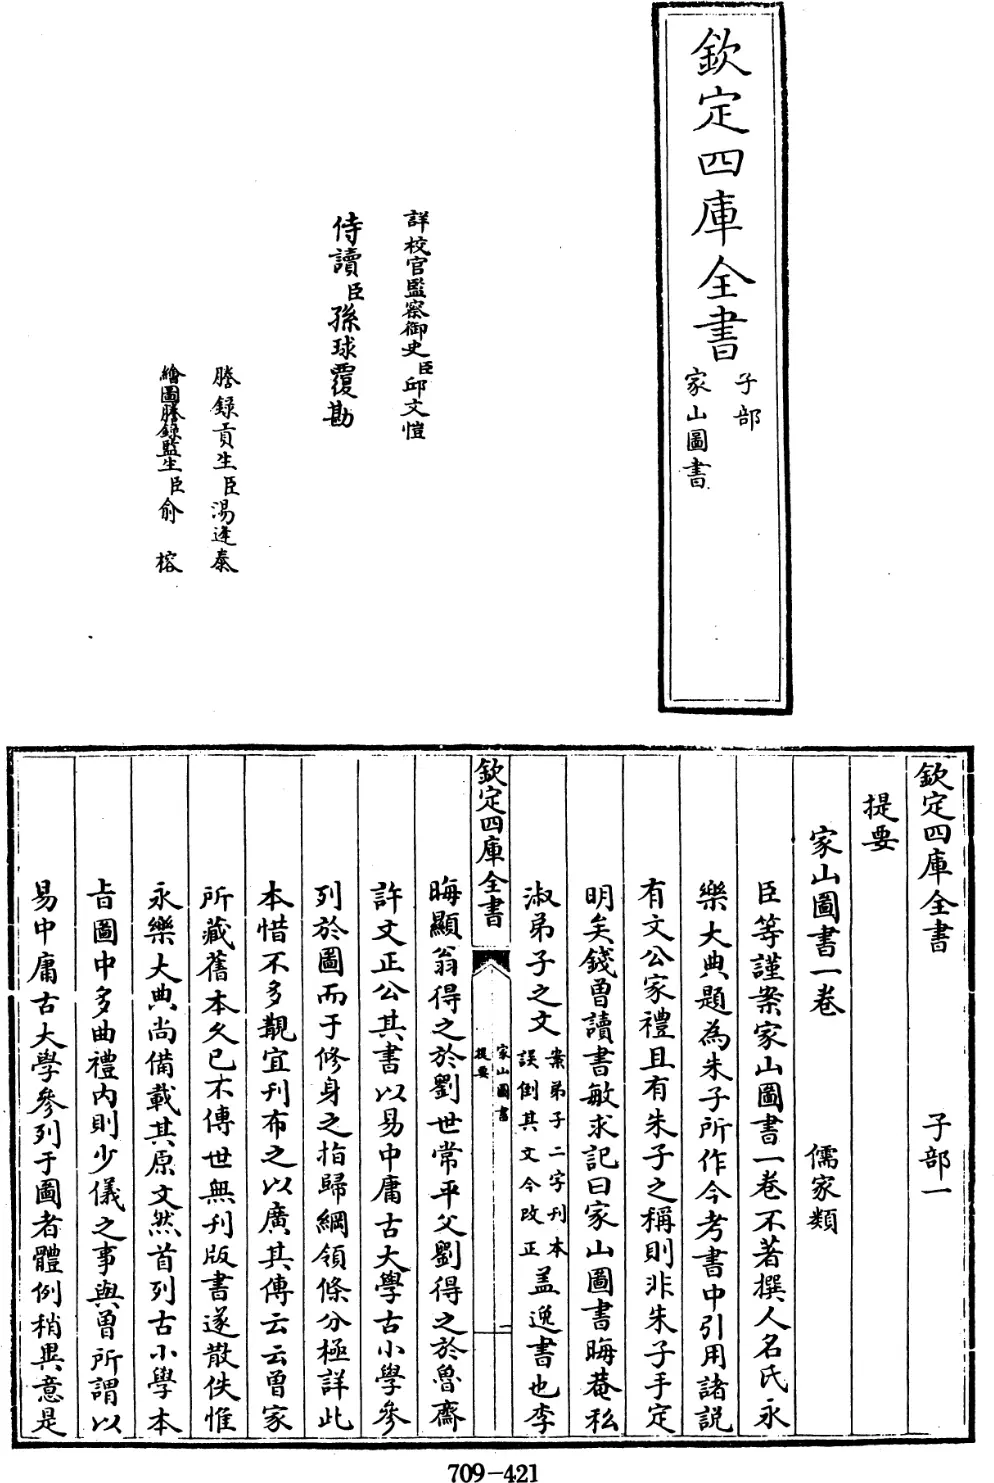 欽定四庫全書
子部
家山圖書
詳校官監察御史臣邱文愷
侍讀臣孫球覆勘
謄錄貢生臣湯逢泰
繪圖謄錄監生臣俞榕
欽定四庫全書 子部一
提要
家山圖書一卷 儒家類
臣等謹案家山圖書一卷不著撰人名氏永
樂大典題為朱子所作今考書中引用諸説
有文公家禮且有朱子之稱則非朱子手定
明矣錢曾讀書敏求記曰家山圖書晦菴私
淑弟子之文案弟子二字刊本誤倒其文今改正蓋逸書也李
欽定四庫全書 家山圖書提要 一
晦顯翁得之於劉世常平父劉得之於魯齋
許文正公其書以易中庸古大學古小學參
列於圖而于修身之指歸綱領條分極詳此
本惜不多覯宜刊布之以廣其傳云云曾家
所藏舊本久已不傳世無刋版書遂散佚惟
永樂大典尚備載其原文然首列古小學本
旨圖中多曲禮内則少儀之事與曾所謂以
易中庸古大學參列于圖者體例稍異意是
709-421